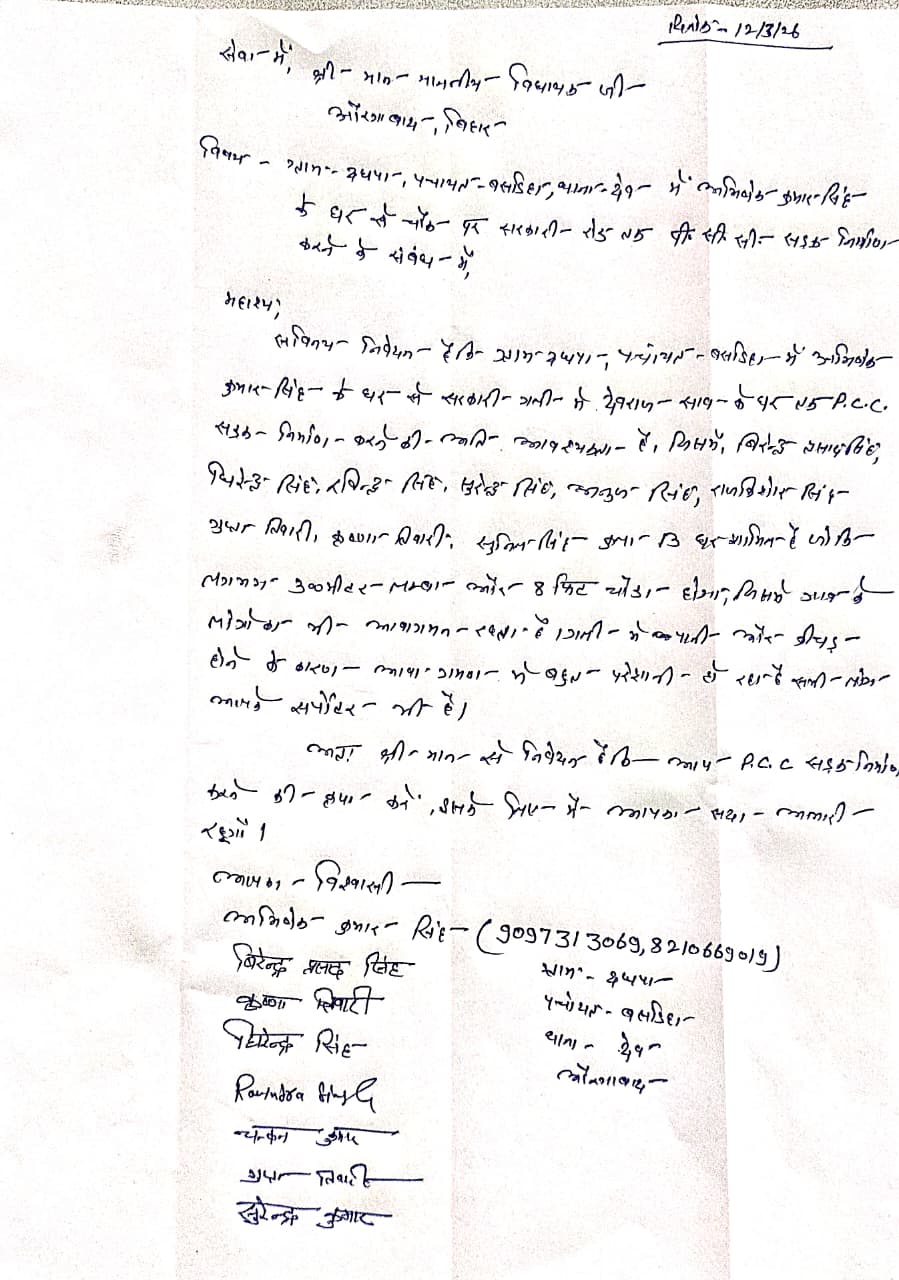 दिनांक - 12/3/26
सेवा - में,
श्री - मान - माननीय - विधायक जी -
औरंगाबाद -, बिहार -
विषय - ग्राम - , पंचायत - बसडिहा, थाना - देव - में अभिषेक कुमार - सिंह -
के घर से चौक पर सरकारी - रोड तक पी. सी. सी. - सड़क निर्माण -
करने के संबंध - में,
महाशय,
सविनय - निवेदन - है कि - ग्राम - , पंचायत - बसडिहा - में अभिषेक
कुमार - सिंह - के घर - से सरकारी - गली - में देवराज - साव - के घर तक P.C.C.
सड़क - निर्माण - करने की - अति आवश्यकता - है, जिसमें, बिरेन्द्र प्रसाद सिंह,
धिरेन्द्र सिंह, रविन्द्र सिंह, सुरेन्द्र सिंह, सिंह, राजकिशोर सिंह -
तिवारी, कृष्णा तिवारी, सिंह - 13 घर शामिल - है जो कि -
लगभग - मीटर - लम्बा - और 8 फिट चौड़ा - होगा, जिसमें के
लोगों का भी - आवागमन - रहता - है। गली - में पानी - और कीचड़ -
होने के कारण - आवा - गमन - में बहुत - परेशानी - हो रहा है सभी - लोग -
आपके सपोर्टर - भी है।
अतः श्री - मान - से निवेदन है कि - आप - P.C.C सड़क - निर्माण,
करने की - कृपा - करें, इसके लिए - मैं - आपका - सदा - आभारी -
रहूगाँ।
आपका - विश्वासी —
अभिषेक - कुमार - सिंह - (9097313069, 8210669019)
बिरेन्द्र प्रसाद सिंह
ग्राम -
कृष्णा तिवारी
पंचायत - बसडिहा -
धिरेन्द्र सिंह
थाना - देव -
औरंगाबाद -
Ravindra Singh
कुमार
तिवारी
सुरेन्द्र कुमार